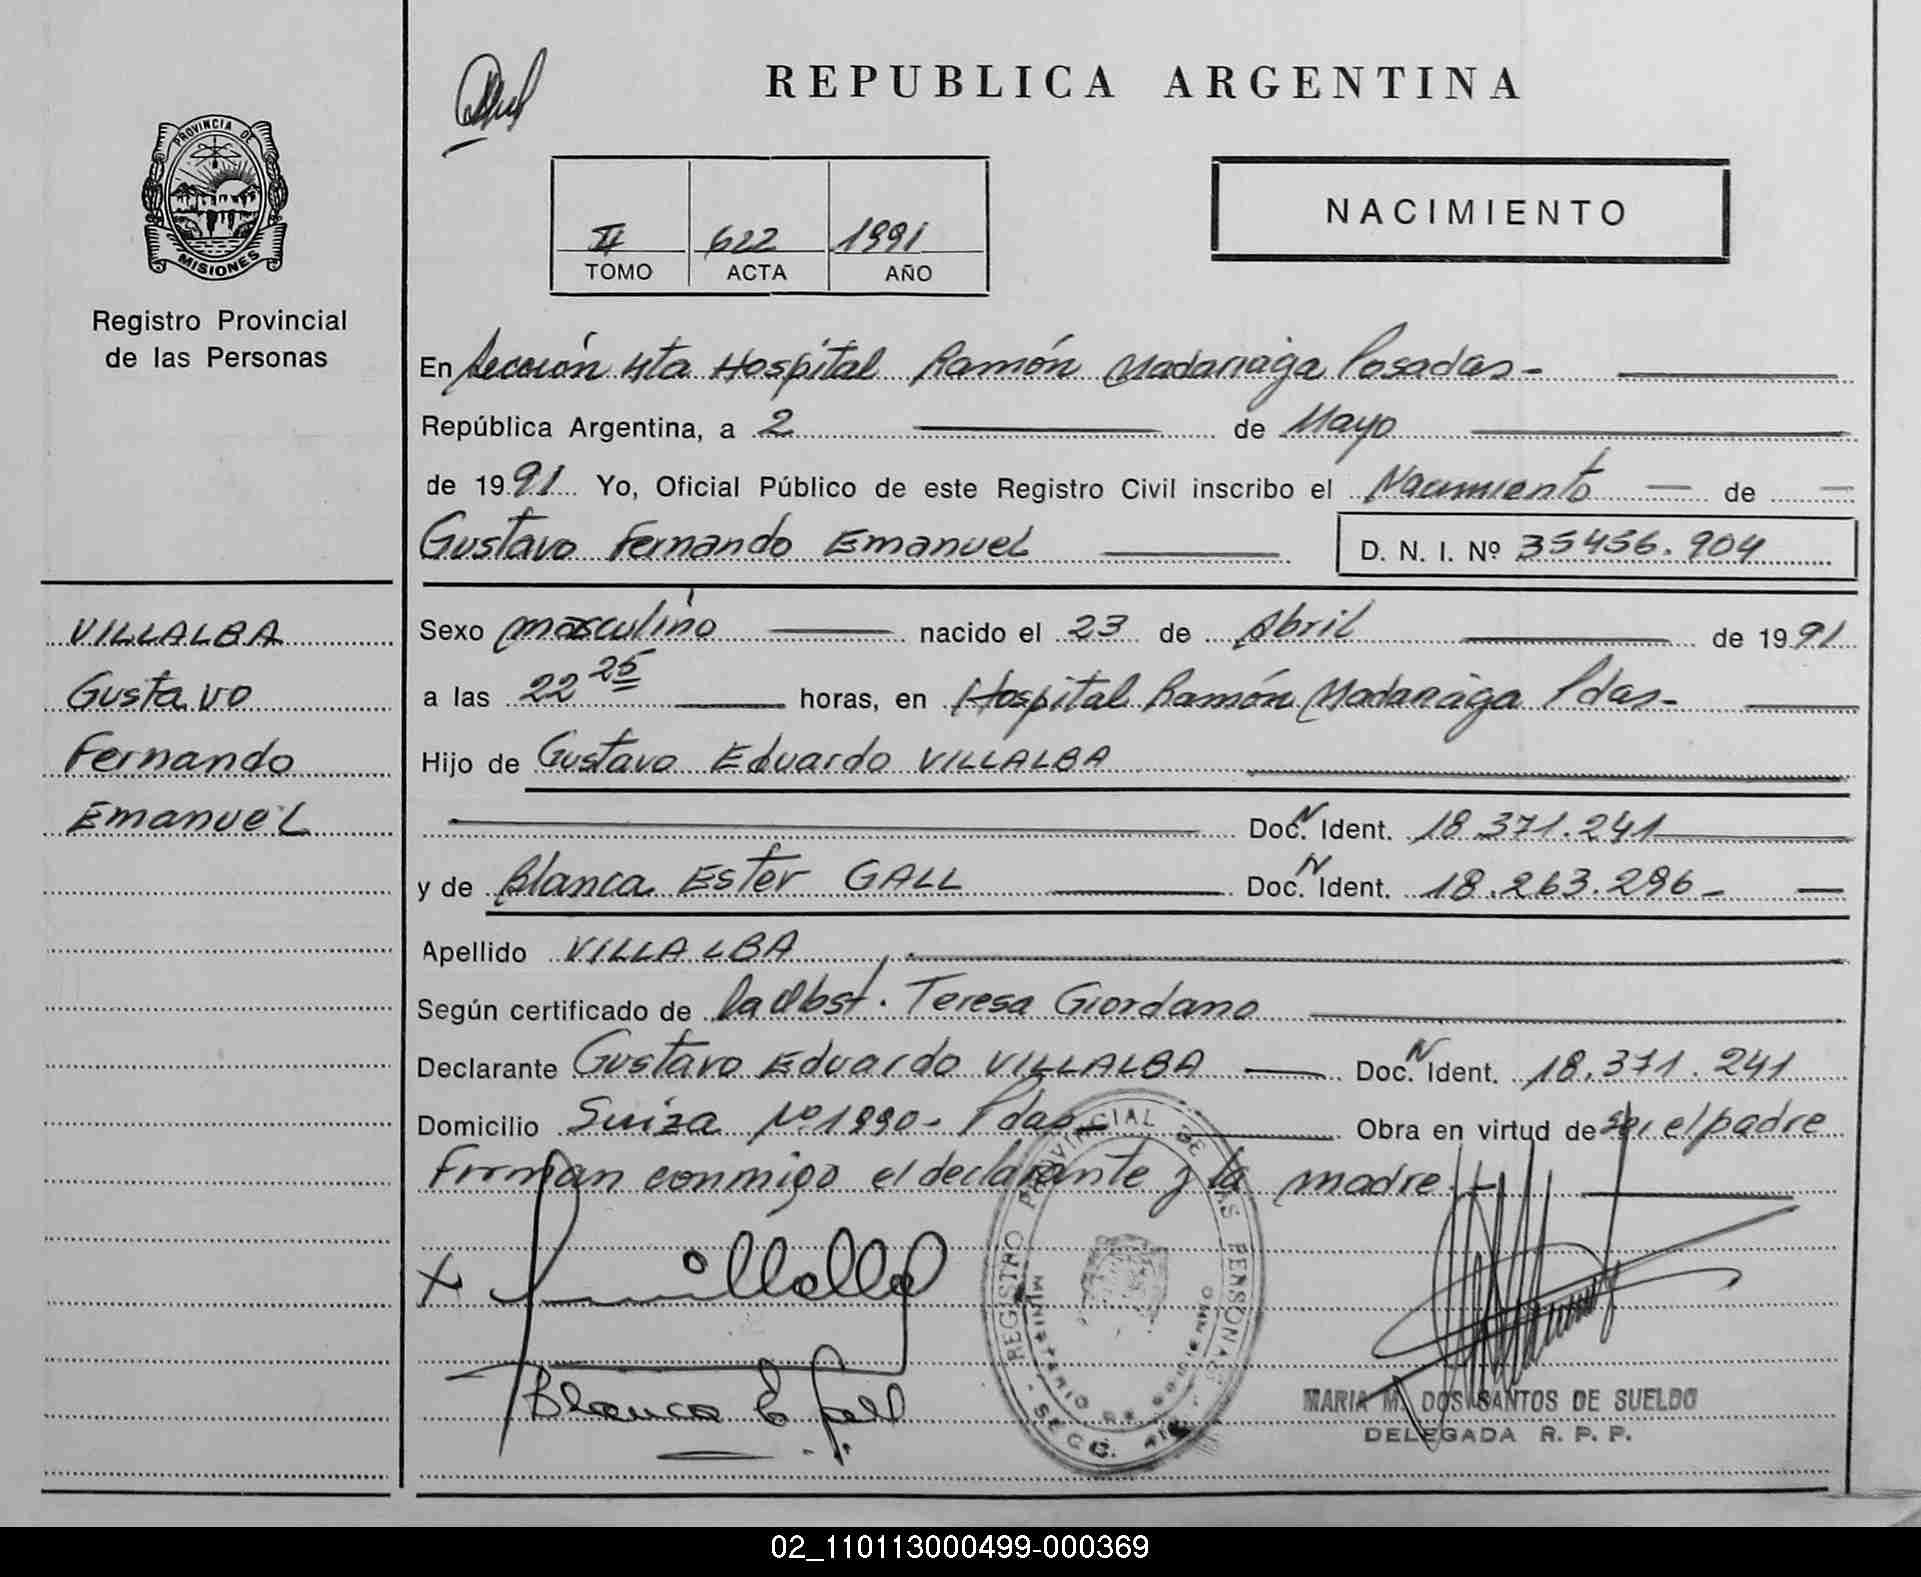 REPUBLICA ARGENTINA
PROVINCIA DE
MISIONES
Registro Provincial
de las Personas
II 622 1991
TOMO ACTA AÑO
NACIMIENTO
En Sección 4ta Hospital Ramón Madariaga Posadas-
República Argentina, a 2 de Mayo
de 1991 Yo, Oficial Público de este Registro Civil inscribo el Nacimiento de
Gustavo Fernando Emanuel D. N. I. Nº 35456.904
VILLALBA
Gustavo
Fernando
Emanuel
Sexo masculino nacido el 23 de Abril de 1991
a las 22 25 horas, en Hospital Ramón Madariaga Pdas-
Hijo de Gustavo Eduardo VILLALBA
Doc. N Ident. 18.371.241
y de Blanca Ester GALL Doc. N Ident. 18.263.296-
Apellido VILLALBA
Según certificado de la Obst. Teresa Giordano
Declarante Gustavo Eduardo VILLALBA Doc. N Ident. 18.371.241
Domicilio Suiza Nº 1990- Pdas- Obra en virtud de ser el padre
Firman conmigo el declarante y la madre.-
Blanca E Gall
REGISTRO PROVINCIAL DE LAS PERSONAS
MINISTERIO DE GOBIERNO
SECC. 4ta
MARIA M. DOS SANTOS DE SUELDO
DELEGADA R. P. P.
02_110113000499-000369